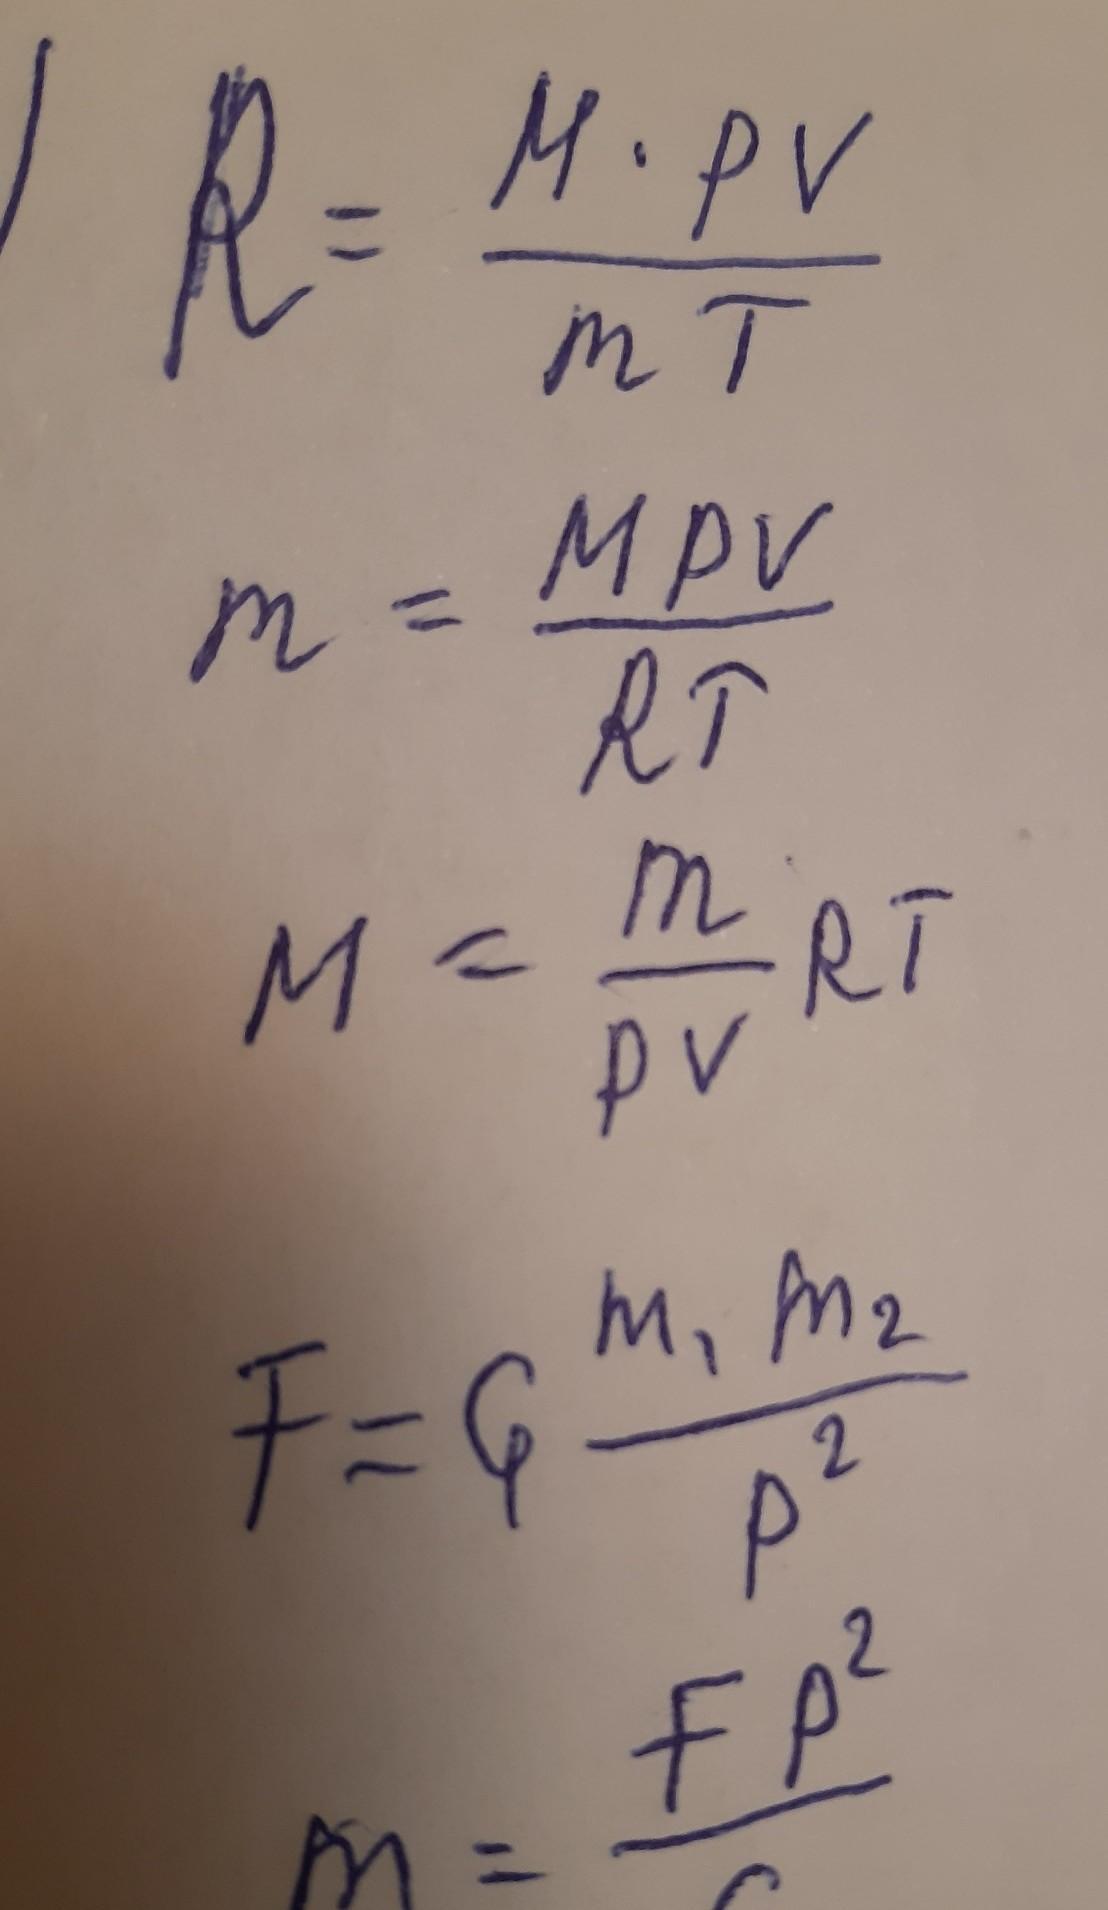 R = M · pV / mT
m = MpV / RT
M = m / pV RT
F = G m₁ m₂ / p²
m = F p² /